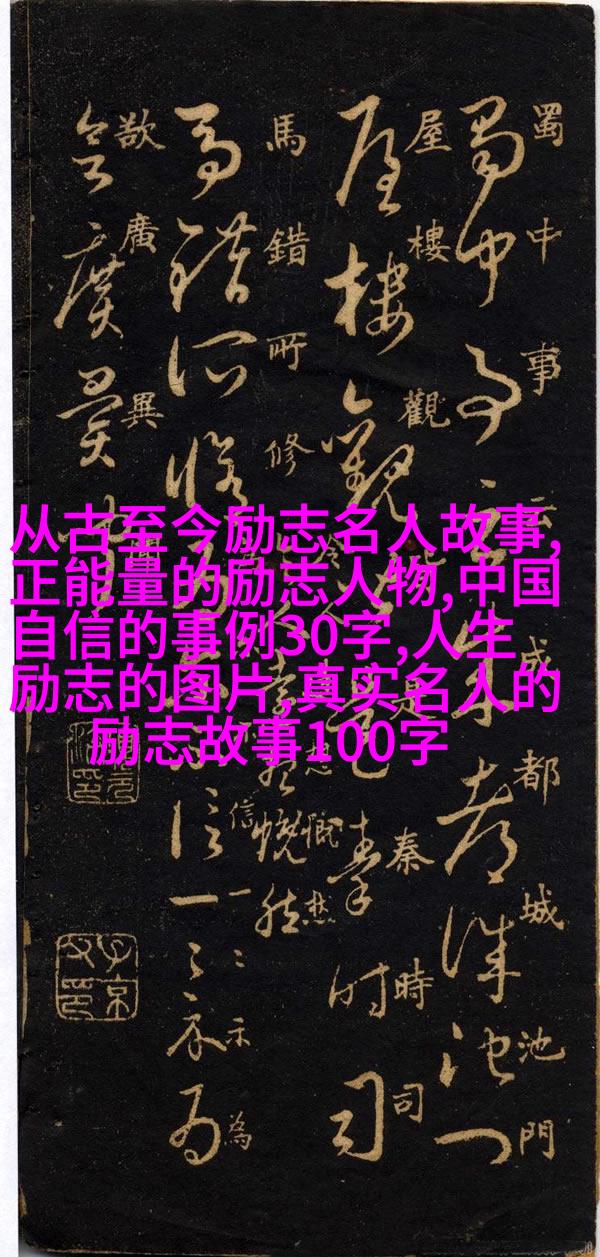 蜀中事云成都城池門
屋樓觀皆是秦時司
令人遠想慨然
馬錯所修信一一示為
欲廣異聞
从古至今励志名人故事,
正能量的励志人物,中国
自信的事例30字,人生
励志的图片,真实名人的
励志故事100字